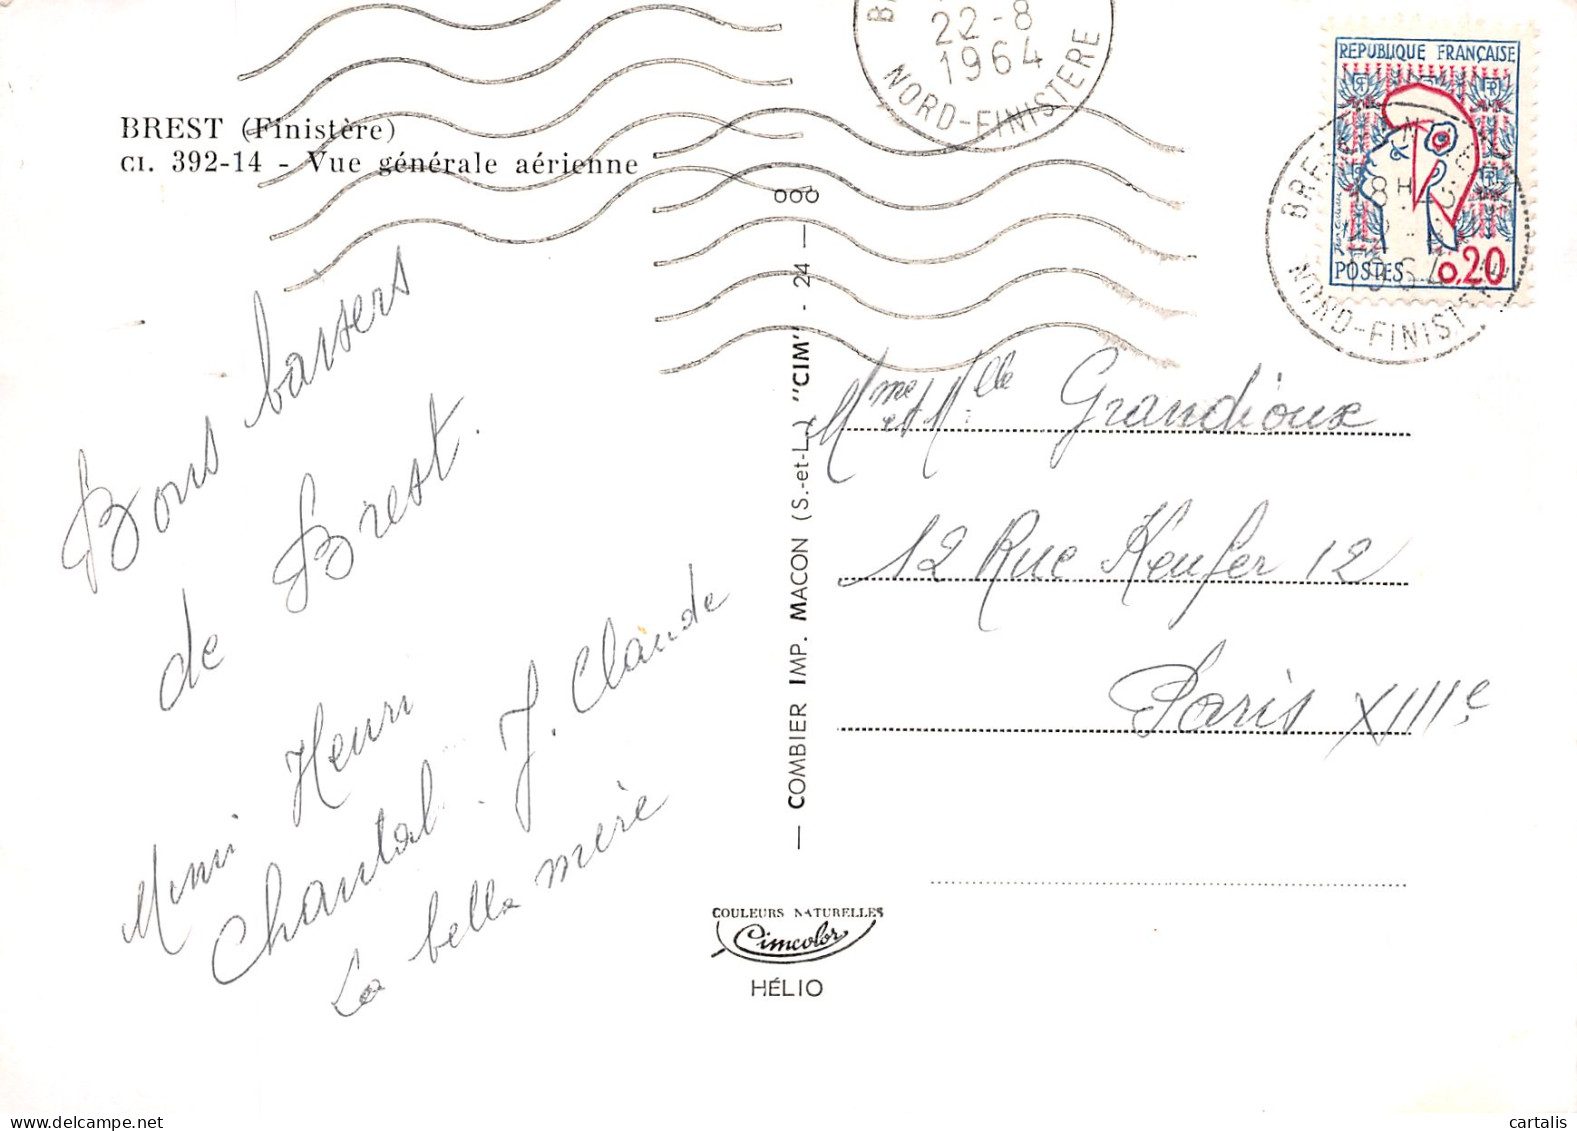 BREST (Finistère)
CI. 392-14 - Vue générale aérienne
22-8
1964
NORD-FINISTERE
REPUBLIQUE FRANÇAISE
POSTES 0,20
BREST
NORD-FINISTERE
Bons baisers
de Brest.
Mimi Henri
Chantal. J. Claude
La belle mère
COMBIER IMP. MACON (S.-et-L.) "CIM" - 24 - ooo
Mme et Mlle Grandioux
12 Rue Keufer 12
Paris XIIIe
COULEURS NATURELLES
Cimcolor
HÉLIO
© cartalis
cartalis